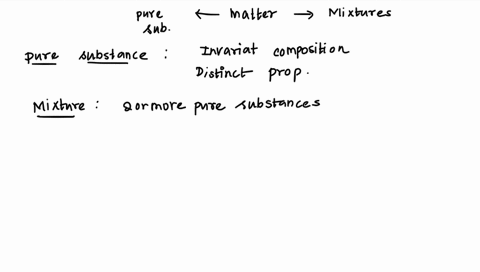 pure sub. ← Matter → Mixtures
pure substance : Invariat composition
Distinct prop.
Mixture : 2 or more pure substances